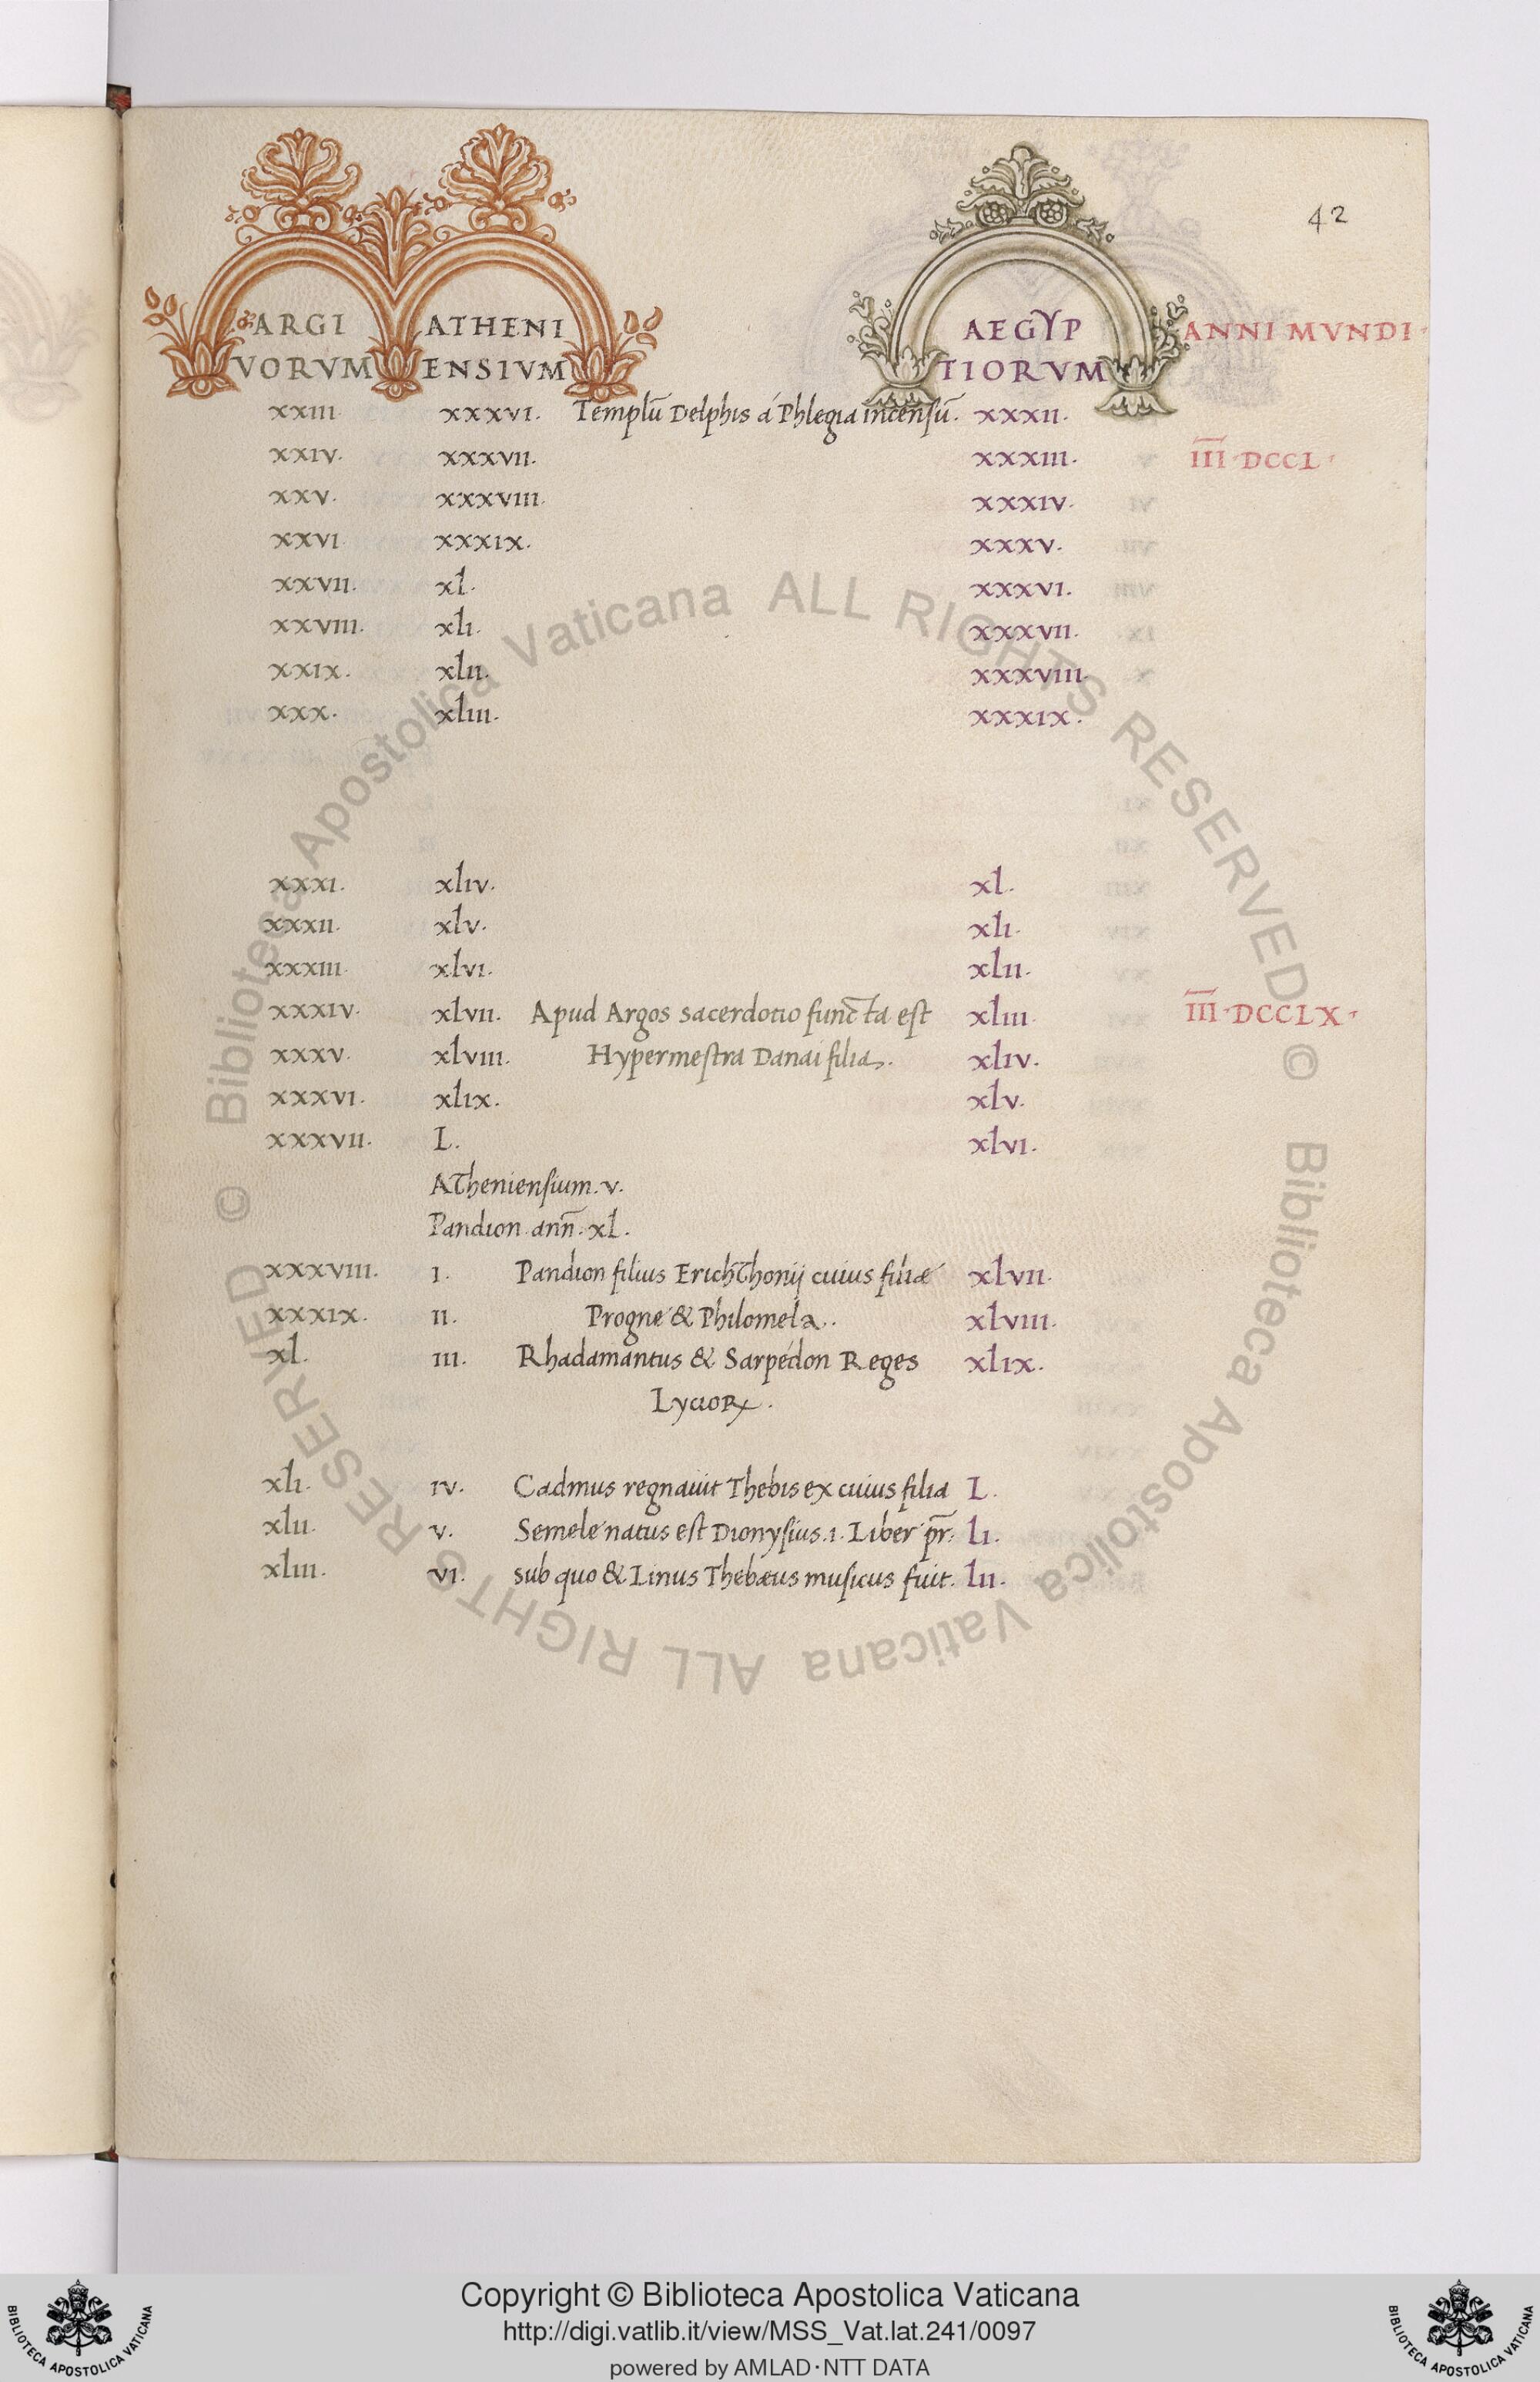 42
ARGI ATHENI AEGYP ANNI MVNDI
VORVM ENSIVM TIORVM
xxiii. xxxvi. Templū Delphis á Phlegia incensū. xxxii.
xxiv. xxxvii. xxxiii. III DCCL
xxv. xxxviii. xxxiv.
xxvi. xxxix. xxxv.
xxvii. xl. xxxvi.
xxviii. xli. xxxvii.
xxix. xlii. xxxviii.
xxx. xliii. xxxix.
xxxi. xliv. xl.
xxxii. xlv. xli.
xxxiii. xlvi. xlii.
xxxiv. xlvii. Apud Argos sacerdotio functa est xliii. III DCCLX
xxxv. xlviii. Hypermestra Danai filia. xliv.
xxxvi. xlix. xlv.
xxxvii. L. xlvi.
Atheniensium. v.
Pandion ann̄. xl.
xxxviii. i. Pandion filius Erichthonij cuius filiæ xlvii.
xxxix. ii. Progne & Philomela. xlviii.
xl. iii. Rhadamantus & Sarpédon Reges xlix.
Lycioꝝ.
xli. iv. Cadmus regnauit Thebis ex cuius filia L.
xlii. v. Semele natus est Dionysius .i. Liber pr̄. li.
xliii. vi. sub quo & Linus Thebæus musicus fuit. lii.
© Biblioteca Apostolica Vaticana ALL RIGHTS RESERVED © Biblioteca Apostolica Vaticana ALL RIGHTS RESERVED
Copyright © Biblioteca Apostolica Vaticana
http://digi.vatlib.it/view/MSS_Vat.lat.241/0097
powered by AMLAD·NTT DATA
BIBLIOTECA APOSTOLICA VATICANA
BIBLIOTECA APOSTOLICA VATICANA